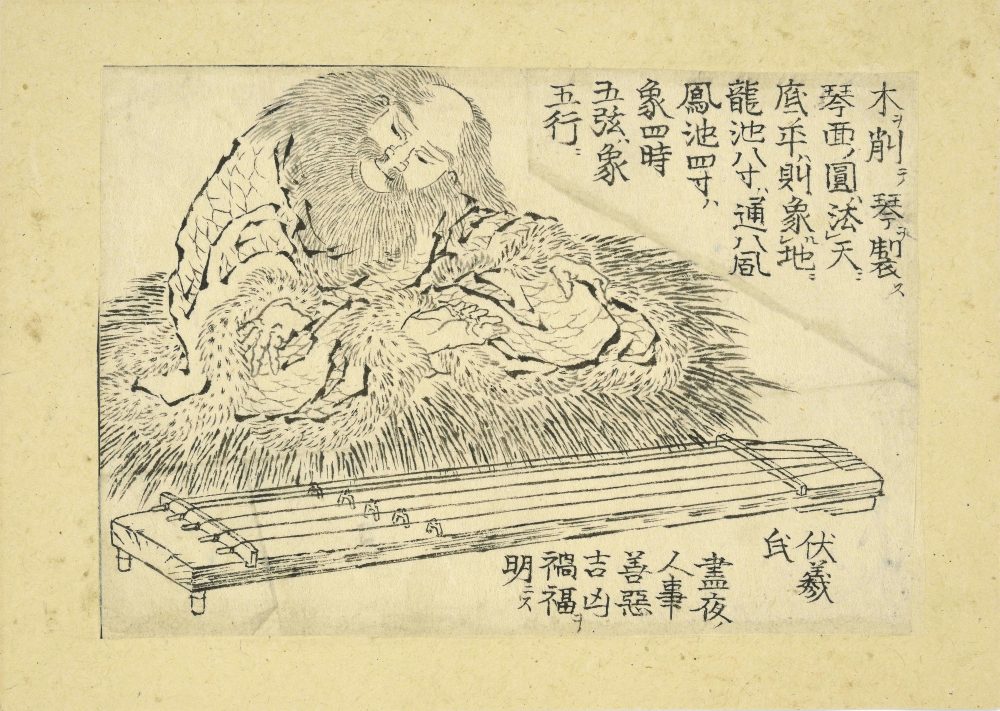 木ヲ削テ琴ヲ製ス
琴面ノ圓ハ法天ニ
底平ハ則象地ニ
龍池八寸ハ通八風
鳳池四寸ハ
象四時
五弦ハ象
五行ニ
伏羲
氏
晝夜ノ
人事
善惡
吉凶
禍福ヲ
明ニス